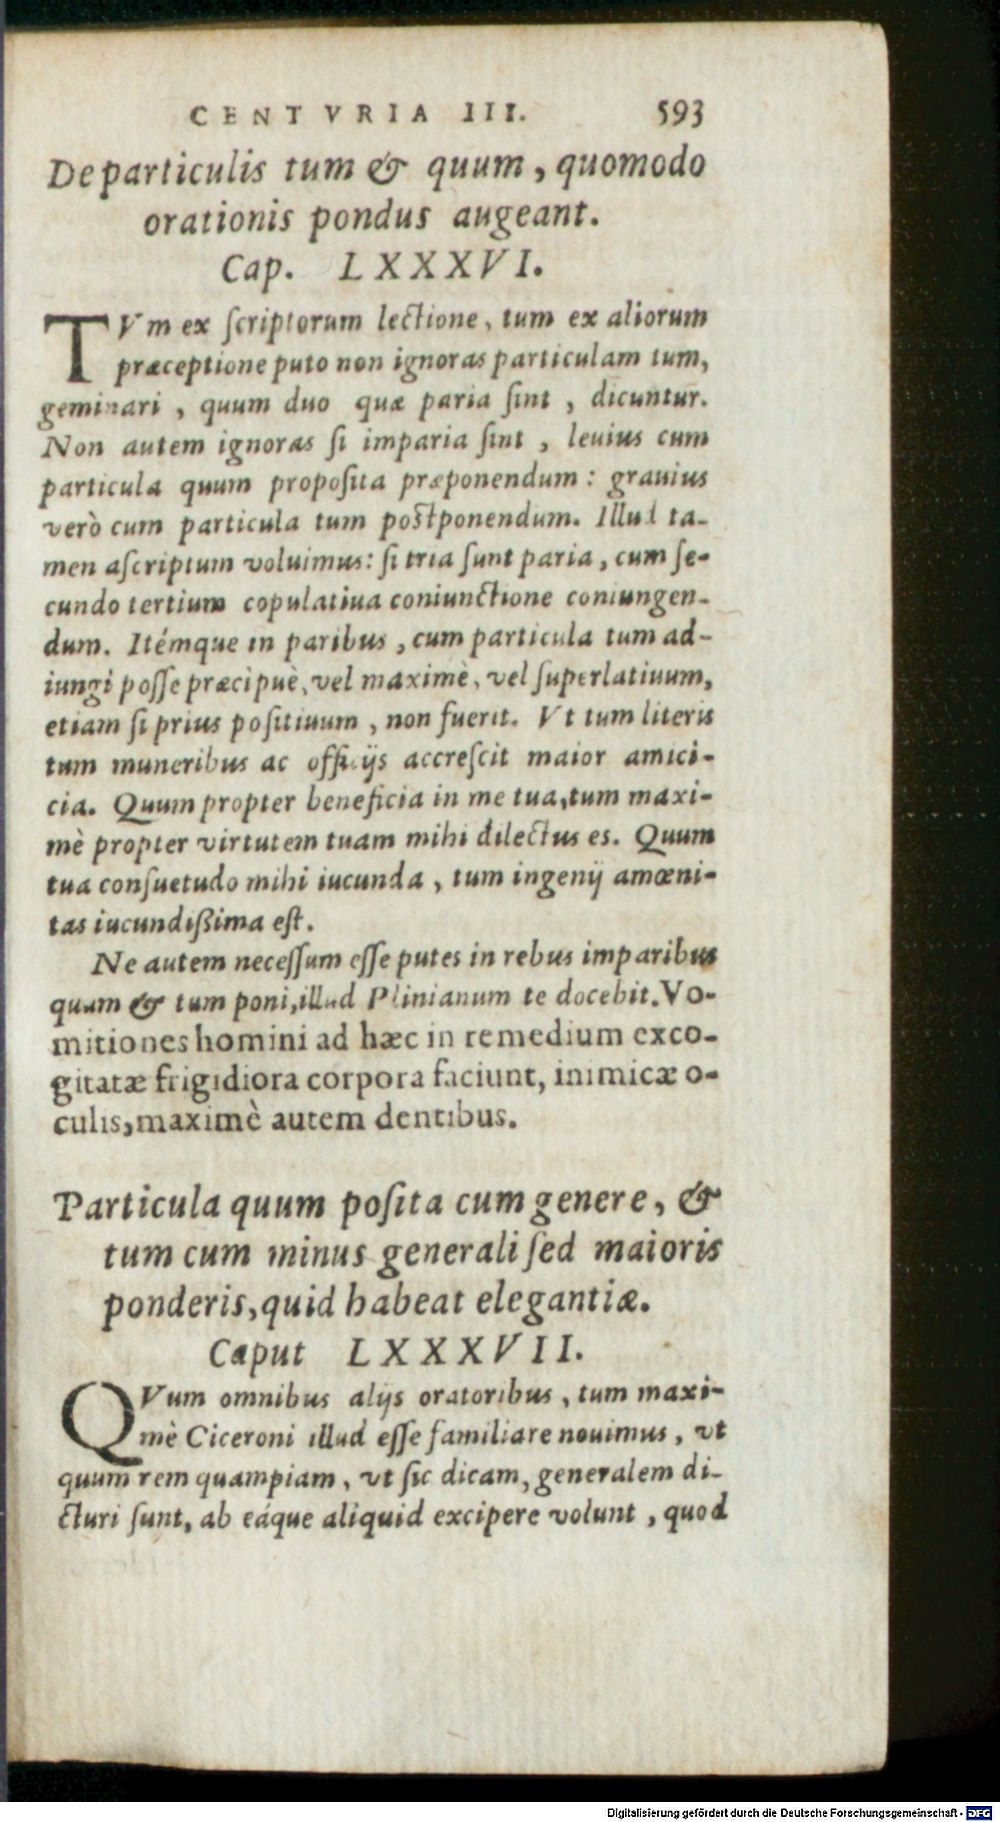 CENTVRIA III. 593
De particulis tum & quum, quomodo
orationis pondus augeant.
Cap. LXXXVI.
TVm ex ſcriptorum lectione, tum ex aliorum
præceptione puto non ignoras particulam tum,
geminari, quum duo quæ paria ſint, dicuntur.
Non autem ignoras ſi imparia ſint, leuius cum
particula quum propoſita præponendum: grauius
verò cum particula tum poſtponendum. Illud ta-
men aſcriptum voluimus: ſi tria ſunt paria, cum ſe-
cundo tertium copulatiua coniunctione coniungen-
dum. Itémque in paribus, cum particula tum ad-
iungi poſſe præcipuè, vel maximè, vel ſuperlatiuum,
etiam ſi prius poſitiuum, non fuerit. Vt tum literis
tum muneribus ac officijs accreſcit maior amici-
cia. Quum propter beneficia in me tua, tum maxi-
mè propter virtutem tuam mihi dilectus es. Quum
tua conſuetudo mihi iucunda, tum ingenij amœni-
tas iucundiſſima eſt.
Ne autem neceſſum eſſe putes in rebus imparibus
quum & tum poni, illud Plinianum te docebit. Vo-
mitiones homini ad hæc in remedium exco-
gitatæ frigidiora corpora faciunt, inimicæ o-
culis, maximè autem dentibus.
Particula quum poſita cum genere, &
tum cum minus generali ſed maioris
ponderis, quid habeat elegantiæ.
Caput LXXXVII.
QVum omnibus alijs oratoribus, tum maxi-
mè Ciceroni illud eſſe familiare nouimus, vt
quum rem quampiam, vt ſic dicam, generalem di-
cturi ſunt, ab eáque aliquid excipere volunt, quod
Digitalisierung gefördert durch die Deutsche Forschungsgemeinschaft - DFG